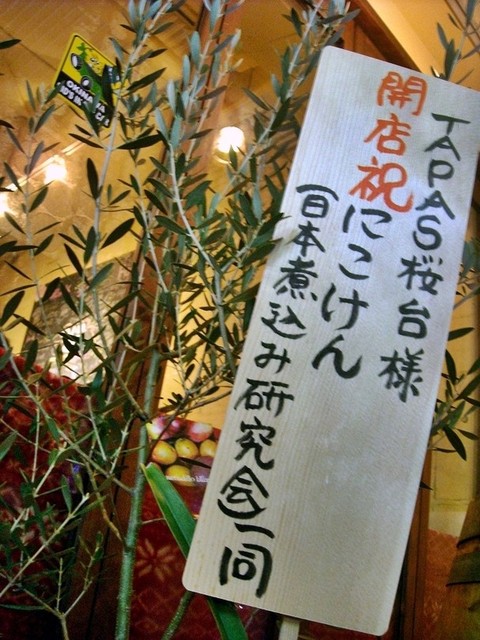 TAPAS桜台様
開店祝
にこけん
(日本煮込み研究会)一同
OKINAWA